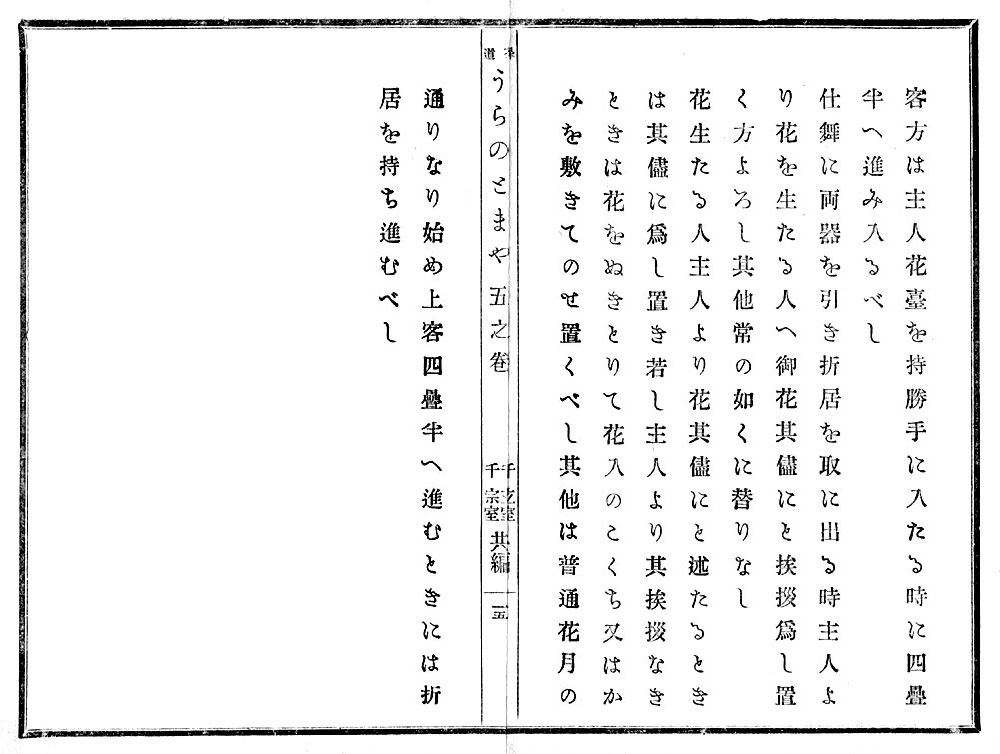 客方は主人花臺を持勝手に入たる時に四疊
半へ進み入るべし
仕舞に両器を引き折居を取に出る時主人よ
り花を生たる人へ御花其儘にと挨拶爲し置
く方よろし其他常の如くに替りなし
花生たる人主人より花其儘にと述たるとき
は其儘に爲し置き若し主人より其挨拶なき
ときは花をぬきとりて花入のこくち又はか
みを敷きてのせ置くべし其他は普通花月の
茶道 うらのとまや 五之卷 千玄室 千宗室 共編 二五
通りなり始め上客四疊半へ進むときには折
居を持ち進むべし